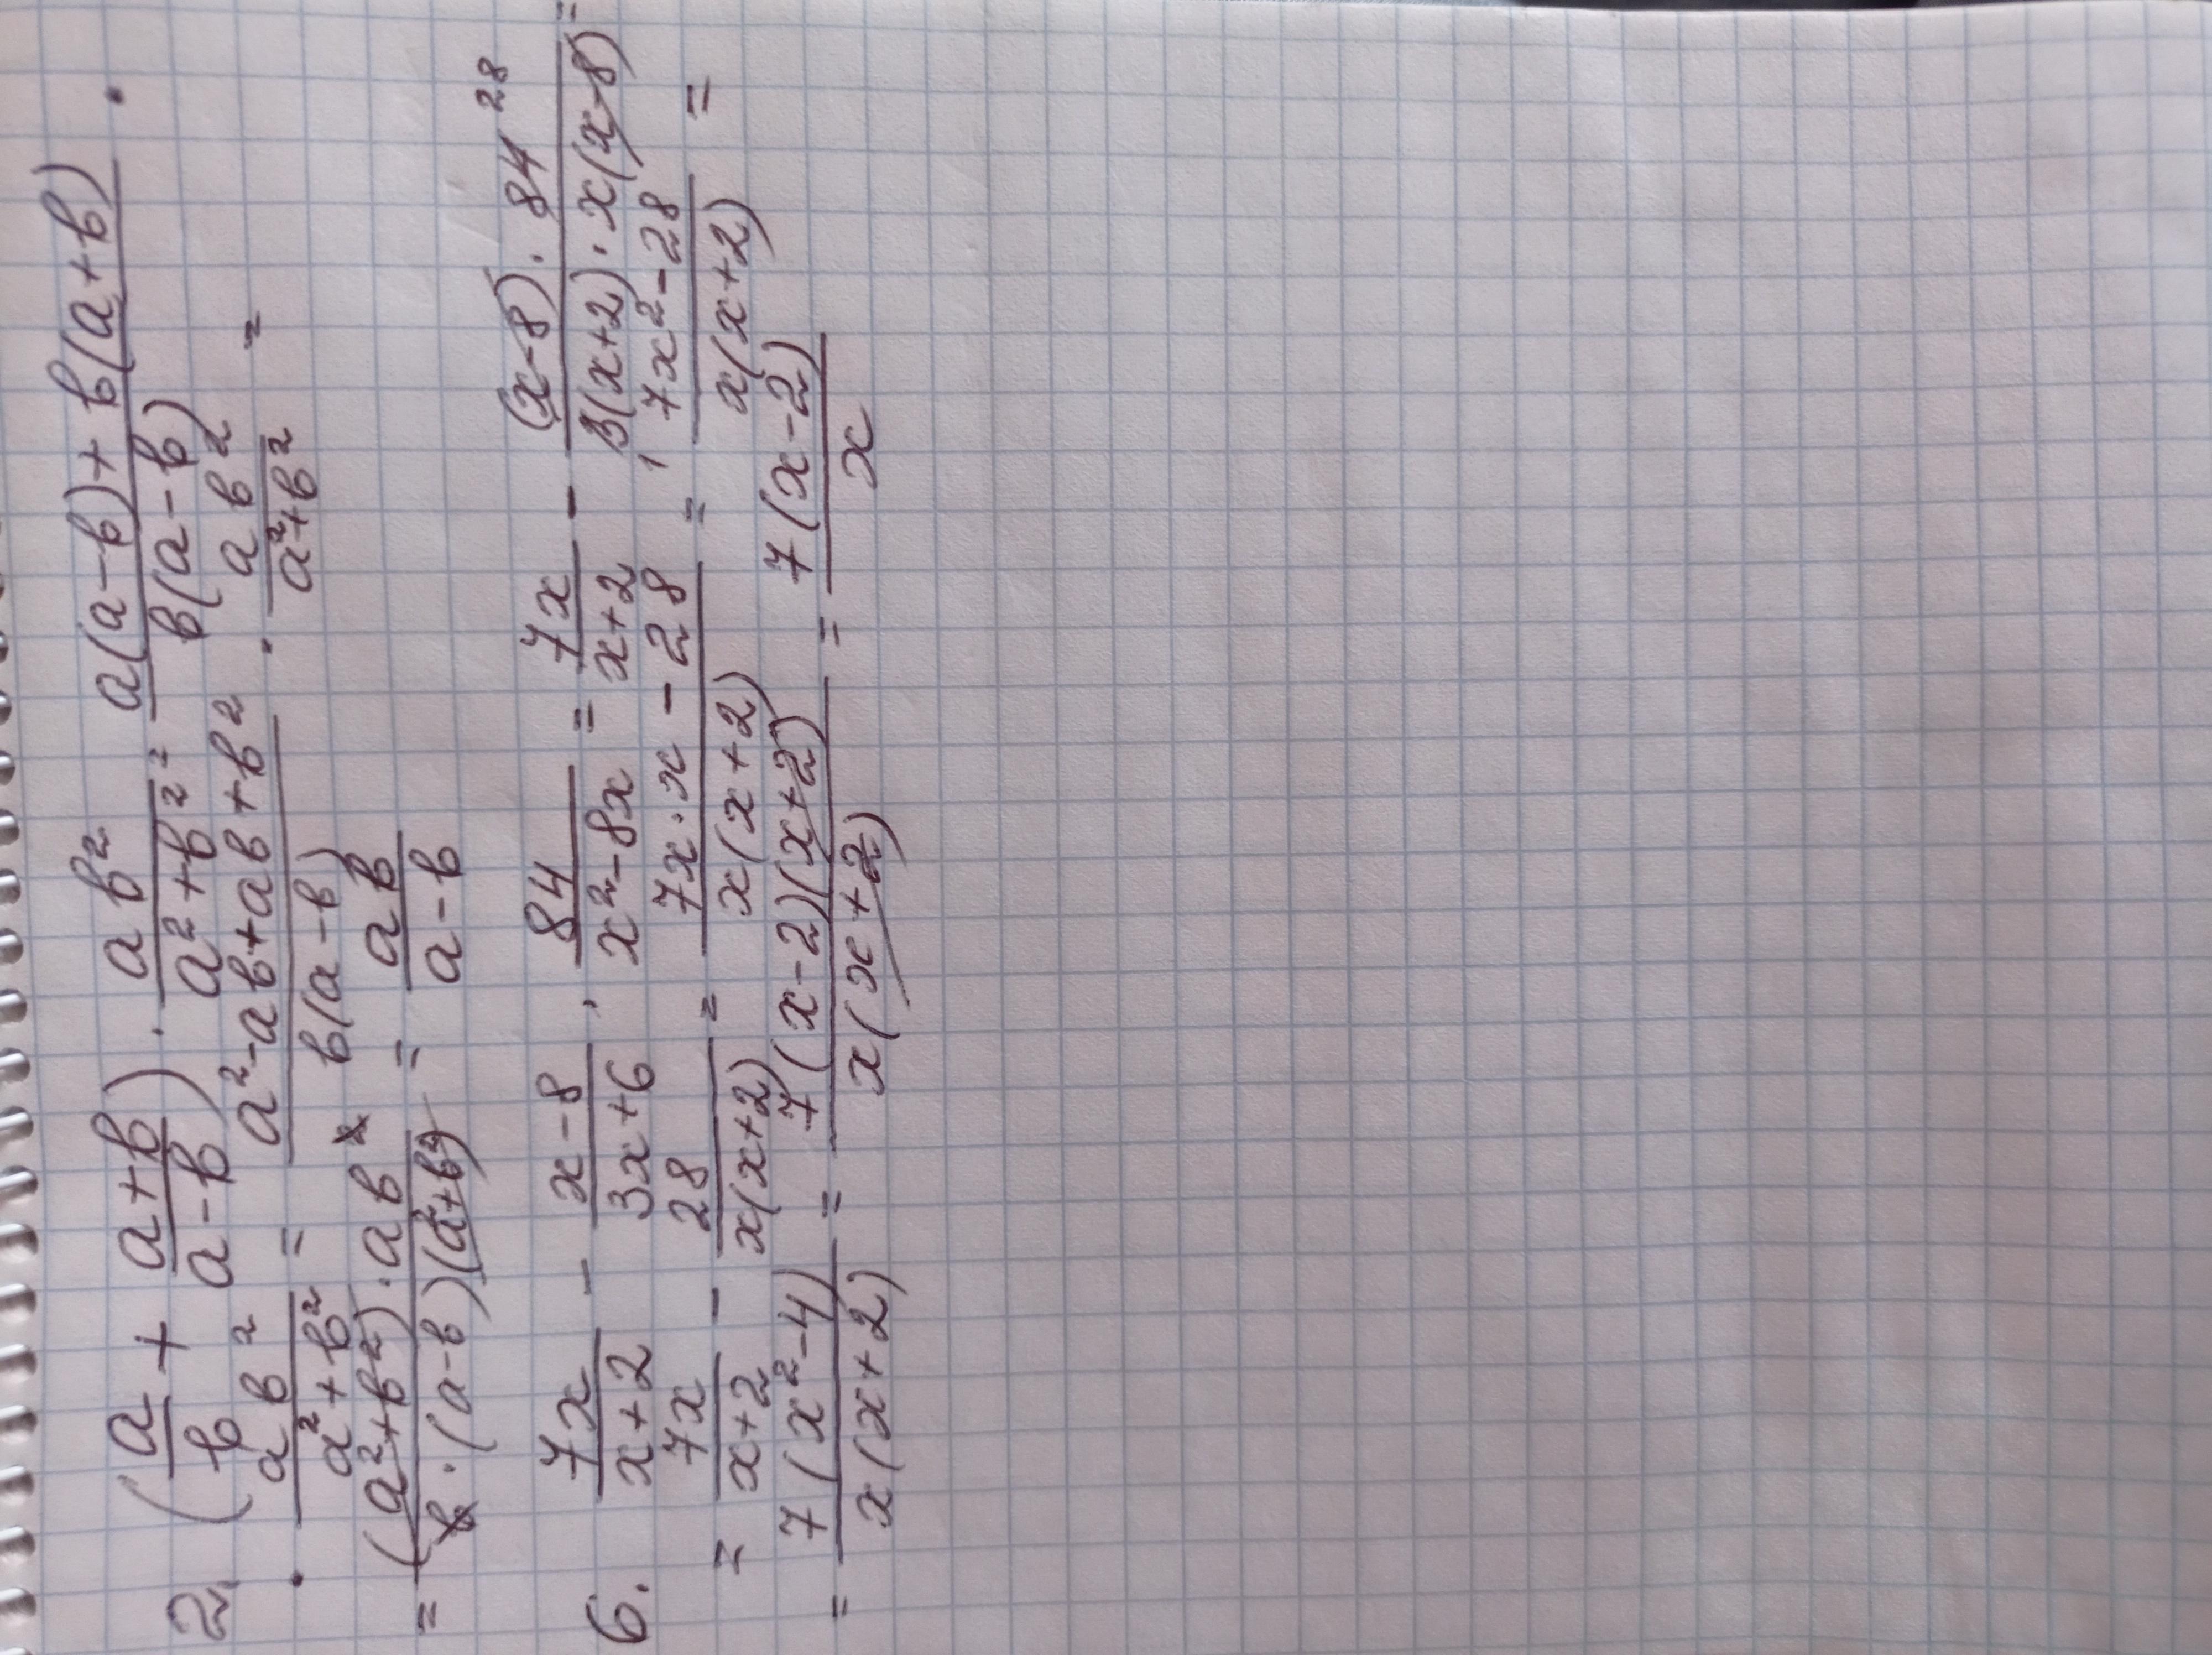 2. (a/в + (a+в)/(a-в)) · aв²/(a²+в²) = (a(a-в)+в(a+в))/(в(a-в)) ·
· aв²/(a²+в²) = (a²-aв+aв+в²)/(в(a-в)) · aв²/(a²+в²) =
= ((a²+в²)·aв²)/(в·(a-в)(a²+в²)) = aв/(a-в)
6. 7x/(x+2) - (x-8)/(3x+6) · 84/(x²-8x) = 7x/(x+2) - ((x-8)·84 28)/(3(x+2)·x(x-8)) =
= 7x/(x+2) - 28/(x(x+2)) = (7x·x-28)/(x(x+2)) = (7x²-28)/(x(x+2)) =
= 7(x²-4)/(x(x+2)) = 7(x-2)(x+2)/(x(x+2)) = 7(x-2)/x